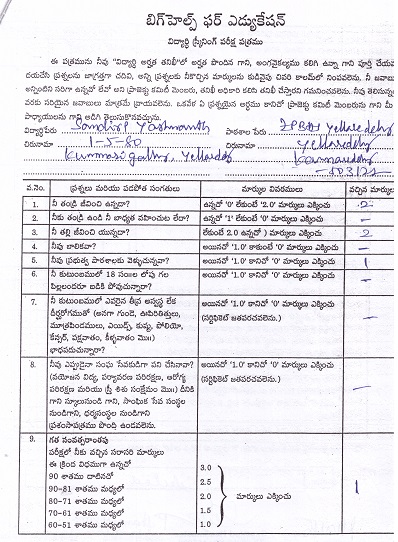 బిగ్‌హెల్ప్ ఫర్ ఎడ్యుకేషన్
విద్యార్థి స్క్రీనింగ్ పరీక్ష పత్రము
ఈ పత్రమును నీవు "విద్యార్థి అర్హత తనిఖీ"లో అర్హత పొందిన గాని, అంగవైకల్యము కలిగి ఉన్నా గాని పూర్తి చేయవ
దయచేసి ప్రశ్నలను జాగ్రత్తగా చదివి, అన్ని ప్రశ్నలకు నీకొచ్చిన మార్కులను కుడివైపు చివరి కాలమ్‌లో నింపవలెను. నీ జవాబు
అన్నింటిని సరిగా ఉన్నదో లేదో అని ప్రాజెక్టు కమిటీ మెంబరు, తనిఖీ అధికారి కలిసి తనిఖీ చేస్తారని గమనించవలెను. నీవు తెలుసున్న
వరకు సరియైన జవాబులు మాత్రమే వ్రాయవలెను. ఒకవేళ ఏ ప్రశ్నయైన అర్థము కానిచో ప్రాజెక్టు కమిటీ మెంబరును గాని మీ
పాధ్యాయులను గాని అడిగి తెలుసుకొనవచ్చును.
విద్యార్థిపేరు Sandip Yashwanth పాఠశాల పేరు ZPBHS Yellareddy
చిరునామా 1-5-80 చిరునామా Yellareddy
Kummari galli, Yellareddy Kamareddy
వ.నెం. ప్రశ్నలు మరియు వడపోత సంగతులు మార్కుల వివరములు వచ్చిన మార్కు
1. నీ తండ్రి జీవించి ఉన్నడా? ఉన్నచో '0' లేకుంటే '2.0' మార్కులు ఎక్కించు 2
2. నీకు తండ్రి ఉండి నీ బాధ్యత వహించుట లేదా? ఉన్నచో '1' లేకుంటే '0' మార్కులు ఎక్కించు –
3. నీ తల్లి జీవించి యున్నదా? లేకుంటే 2.0 ఉన్నచో ) మార్కులు ఎక్కించు 2
4. నీవు బాలికవా? అయినచో '1.0' కాకుంటే '0' మార్కులు ఎక్కించు –
5. నీవు ప్రభుత్వ పాఠశాలకు వెళ్ళుచున్నవా? అయినచో '1.0' కానిచో '0' మార్కులు ఎక్కించు 1
6. నీ కుటుంబములో 18 సం॥ల లోపు గల
పిల్లలందరూ బడికి పోవుచున్నారా? అయినచో '1.0' కానిచో '0' మార్కులు ఎక్కించు –
7. నీ కుటుంబములో ఎవరైన తీవ్ర అస్వస్థ లేక
దీర్ఘరోగముతో (అనగా గుండె, ఊపిరితిత్తులు,
మూత్రపిండములు, ఎయిడ్స్, కుష్ఠు, పోలియో,
కేన్సర్, పక్షవాతం, కీళ్ళవాతం మొ॥)
భాధపడుచున్నారా?
అయినచో '1.0' కానిచో '0' మార్కులు ఎక్కించు
(సర్టిఫికెట్ జతపరచవలెను.) –
8. నీవు ఎప్పుడైనా సంఘ సేవకుడిగా పని చేసినావా?
(వయోజన విద్య, పర్యావరణ పరిరక్షణ, ఆరోగ్య
పరిరక్షణ మరియు స్త్రీ శిశు సంక్షేమం మొ॥) దీనికి
గాని స్కూలునుండి గాని, సాంఘిక సేవ సంస్థల
నుండిగాని, ధర్మసంస్థల నుండిగాని
ప్రశంసాపత్రము పొంది ఉండవలెను.
అయినచో '1.0' కానిచో '0' మార్కులు ఎక్కించు
(సర్టిఫికెట్ జతపరచవలెను.) –
9. గత సంవత్సరాంతపు
పరీక్షలో నీకు వచ్చిన సరాసరి మార్కులు
ఈ క్రింద విధముగా ఉన్నచో
90 శాతము దాటినచో 3.0
90-81 శాతము మధ్యలో 2.5
80-71 శాతము మధ్యలో 2.0
70-61 శాతము మధ్యలో 1.5
60-51 శాతము మధ్యలో 1.0
మార్కులు ఎక్కించు 1